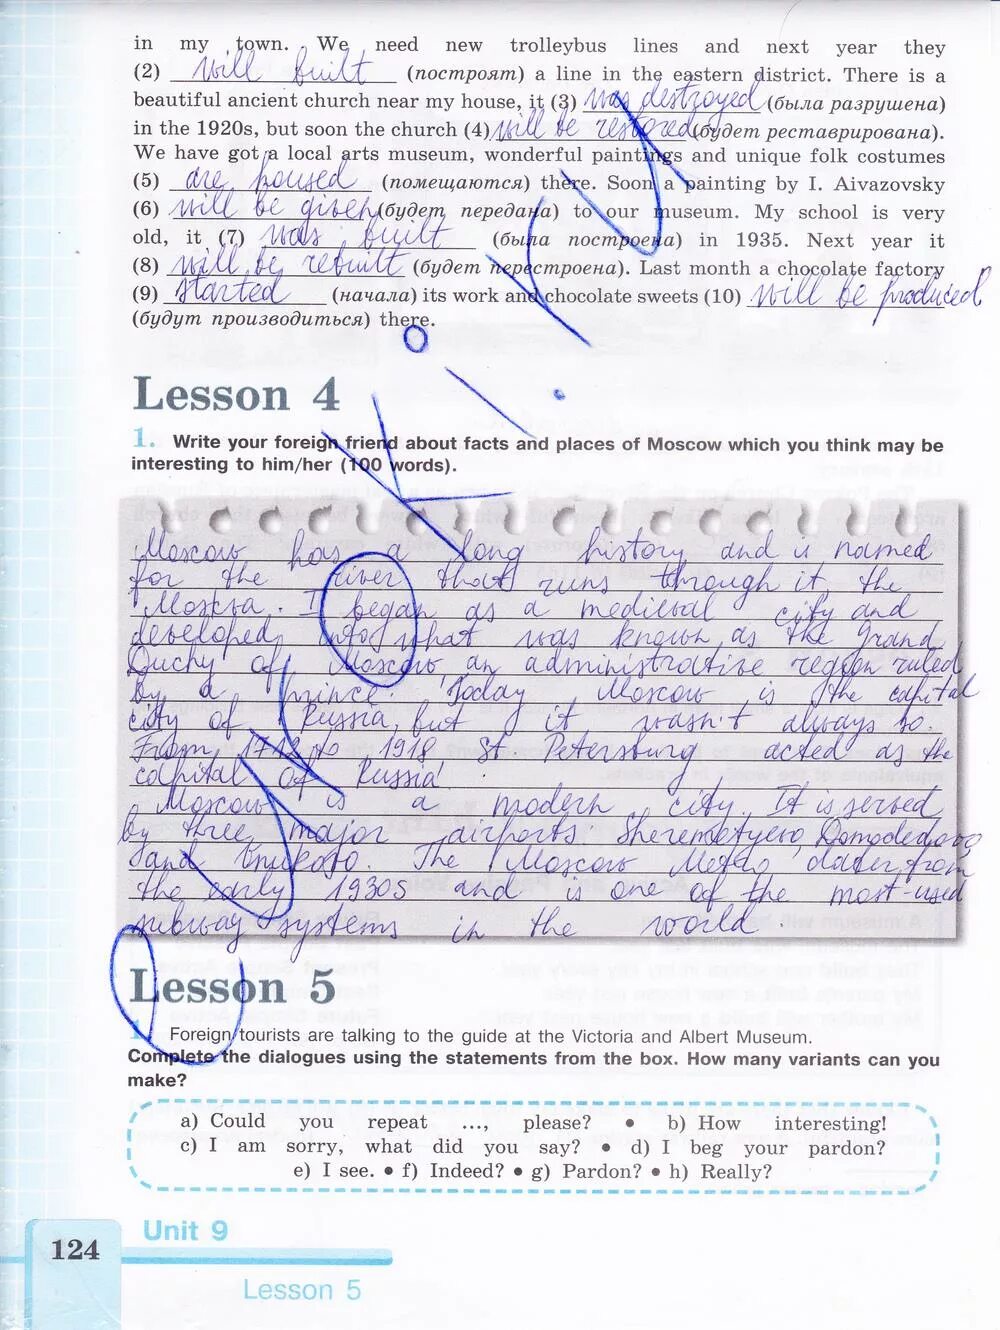 in my town. We need new trolleybus lines and next year they
(2) will built (построят) a line in the eastern district. There is a
beautiful ancient church near my house, it (3) was destroyed (была разрушена)
in the 1920s, but soon the church (4) will be restored (будет реставрирована).
We have got a local arts museum, wonderful paintings and unique folk costumes
(5) are housed (помещаются) there. Soon a painting by I. Aivazovsky
(6) will be given (будет передана) to our museum. My school is very
old, it (7) was built (была построена) in 1935. Next year it
(8) will be rebuilt (будет перестроена). Last month a chocolate factory
(9) started (начала) its work and chocolate sweets (10) will be produced
(будут производиться) there.
Lesson 4
1. Write your foreign friend about facts and places of Moscow which you think may be
interesting to him/her (100 words).
Moscow has a long history and is named
for the river that runs through it, the
Moskva. I began as a medieval city and
developed into what was known as the Grand
Duchy of Moscow, an administrative region ruled
by a prince. Today Moscow is the capital
city of Russia, but it wasn't always so.
From 1712 to 1918 St. Petersburg acted as the
capital of Russia.
Moscow is a modern city. It is served
by three major airports: Sheremetyevo, Domodedovo
and Vnukovo. The Moscow Metro dates from
the early 1930s and is one of the most-used
subway systems in the world.
Lesson 5
1. Foreign tourists are talking to the guide at the Victoria and Albert Museum.
Complete the dialogues using the statements from the box. How many variants can you
make?
a) Could you repeat ..., please? • b) How interesting!
c) I am sorry, what did you say? • d) I beg your pardon?
e) I see. • f) Indeed? • g) Pardon? • h) Really?
124
Unit 9
Lesson 5